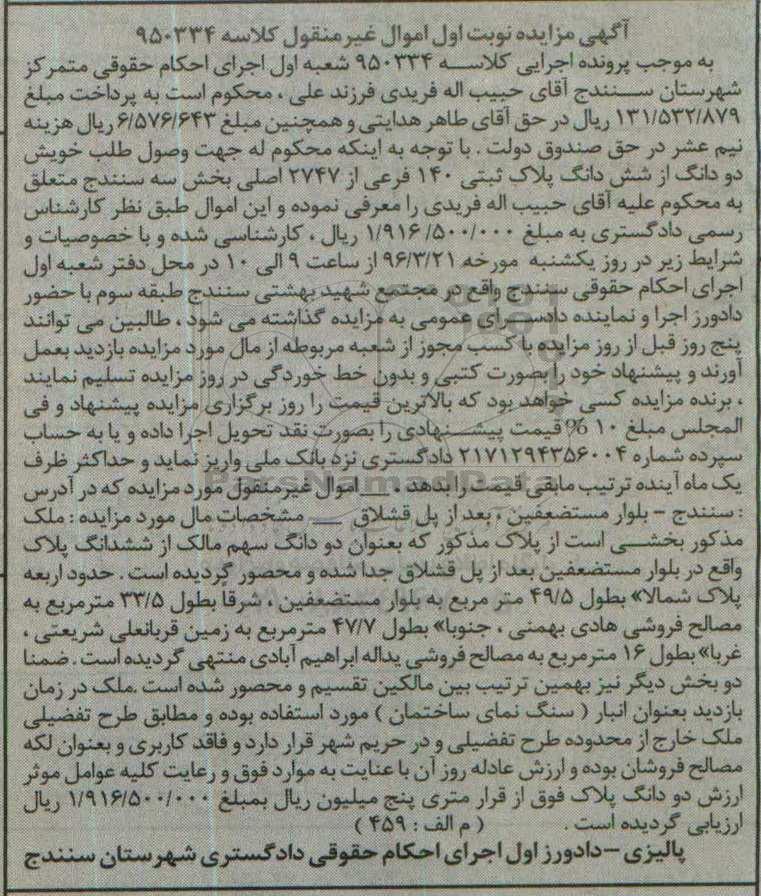 آگهی مزایده نوبت اول اموال غیر منقول کلاسه ۹۵۰۳۳۴
به موجب پرونده اجرایی کلاسه ۹۵۰۳۳۴ شعبه اول اجرای احکام حقوقی متمرکز
شهرستان سنندج آقای حبیب اله فریدی فرزند علی ، محکوم است به پرداخت مبلغ
۱۳۱/۵۳۲/۸۷۹ ریال در حق آقای طاهر هدایتی و همچنین مبلغ ۶/۵۷۶/۶۴۳ ریال هزینه
نیم عشر در حق صندوق دولت . با توجه به اینکه محکوم له جهت وصول طلب خویش
دو دانگ از شش دانگ پلاک ثبتی ۱۴۰ فرعی از ۲۷۴۷ اصلی بخش سه سنندج متعلق
به محکوم علیه آقای حبیب اله فریدی را معرفی نموده و این اموال طبق نظر کارشناس
رسمی دادگستری به مبلغ ۱/۹۱۶/۵۰۰/۰۰۰ ریال ، کارشناسی شده و با خصوصیات و
شرایط زیر در روز یکشنبه مورخه ۹۶/۳/۲۱ از ساعت ۹ الی ۱۰ در محل دفتر شعبه اول
اجرای احکام حقوقی سنندج واقع در مجتمع شهید بهشتی سنندج طبقه سوم با حضور
دادورز اجرا و نماینده دادسرای عمومی به مزایده گذاشته می شود ، طالبین می توانند
پنج روز قبل از روز مزایده با کسب مجوز از شعبه مربوطه از مال مورد مزایده بازدید بعمل
آورند و پیشنهاد خود را بصورت کتبی و بدون خط خوردگی در روز مزایده تسلیم نمایند
، برنده مزایده کسی خواهد بود که بالاترین قیمت را روز برگزاری مزایده پیشنهاد و فی
المجلس مبلغ ۱۰ % قیمت پیشنهادی را بصورت نقد تحویل اجرا داده و یا به حساب
سپرده شماره ۲۱۷۱۲۹۴۳۵۶۰۰۴ دادگستری نزد بانک ملی واریز نماید و حداکثر ظرف
یک ماه آینده ترتیب مابقی قیمت را بدهد . __ اموال غیرمنقول مورد مزایده که در آدرس
: سنندج – بلوار مستضعفین ، بعد از پل قشلاق __ مشخصات مال مورد مزایده : ملک
مذکور بخشی است از پلاک مذکور که بعنوان دو دانگ سهم مالک از ششدانگ پلاک
واقع در بلوار مستضعفین بعد از پل قشلاق جدا شده و محصور گردیده است . حدود اربعه
پلاک شمالا» بطول ۴۹/۵ متر مربع به بلوار مستضعفین ، شرقا بطول ۳۳/۵ مترمربع به
مصالح فروشی هادی بهمنی ، جنوبا» بطول ۴۷/۷ مترمربع به زمین قربانعلی شریعتی ،
غربا» بطول ۱۶ مترمربع به مصالح فروشی یداله ابراهیم آبادی منتهی گردیده است . ضمنا
دو بخش دیگر نیز بهمین ترتیب بین مالکین تقسیم و محصور شده است .ملک در زمان
بازدید بعنوان انبار ( سنگ نمای ساختمان ) مورد استفاده بوده و مطابق طرح تفضیلی
ملک خارج از محدوده طرح تفضیلی و در حریم شهر قرار دارد و فاقد کاربری و بعنوان لکه
مصالح فروشان بوده و ارزش عادله روز آن با عنایت به موارد فوق و رعایت کلیه عوامل موثر
ارزش دو دانگ پلاک فوق از قرار متری پنج میلیون ریال بمبلغ ۱/۹۱۶/۵۰۰/۰۰۰ ریال
ارزیابی گردیده است . ( م الف : ۴۵۹ )
پالیزی –دادورز اول اجرای احکام حقوقی دادگستری شهرستان سنندج
ParsNamadData